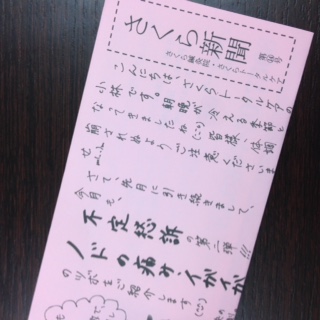 さくら新聞
第96号
さくら鍼灸院・さくらトータルケア
こんにちは、さくらトータルケアの
小林です。朝晩が冷える季節と
なってきましたね(;;)皆様、体調
崩されぬようご注意くださいま
せm(__)m
さて、先月に引き続きまして、
今月も、
不定愁訴の第二弾!!!
ノドの痛み、イガイガ
のツボをご紹介します(;;)